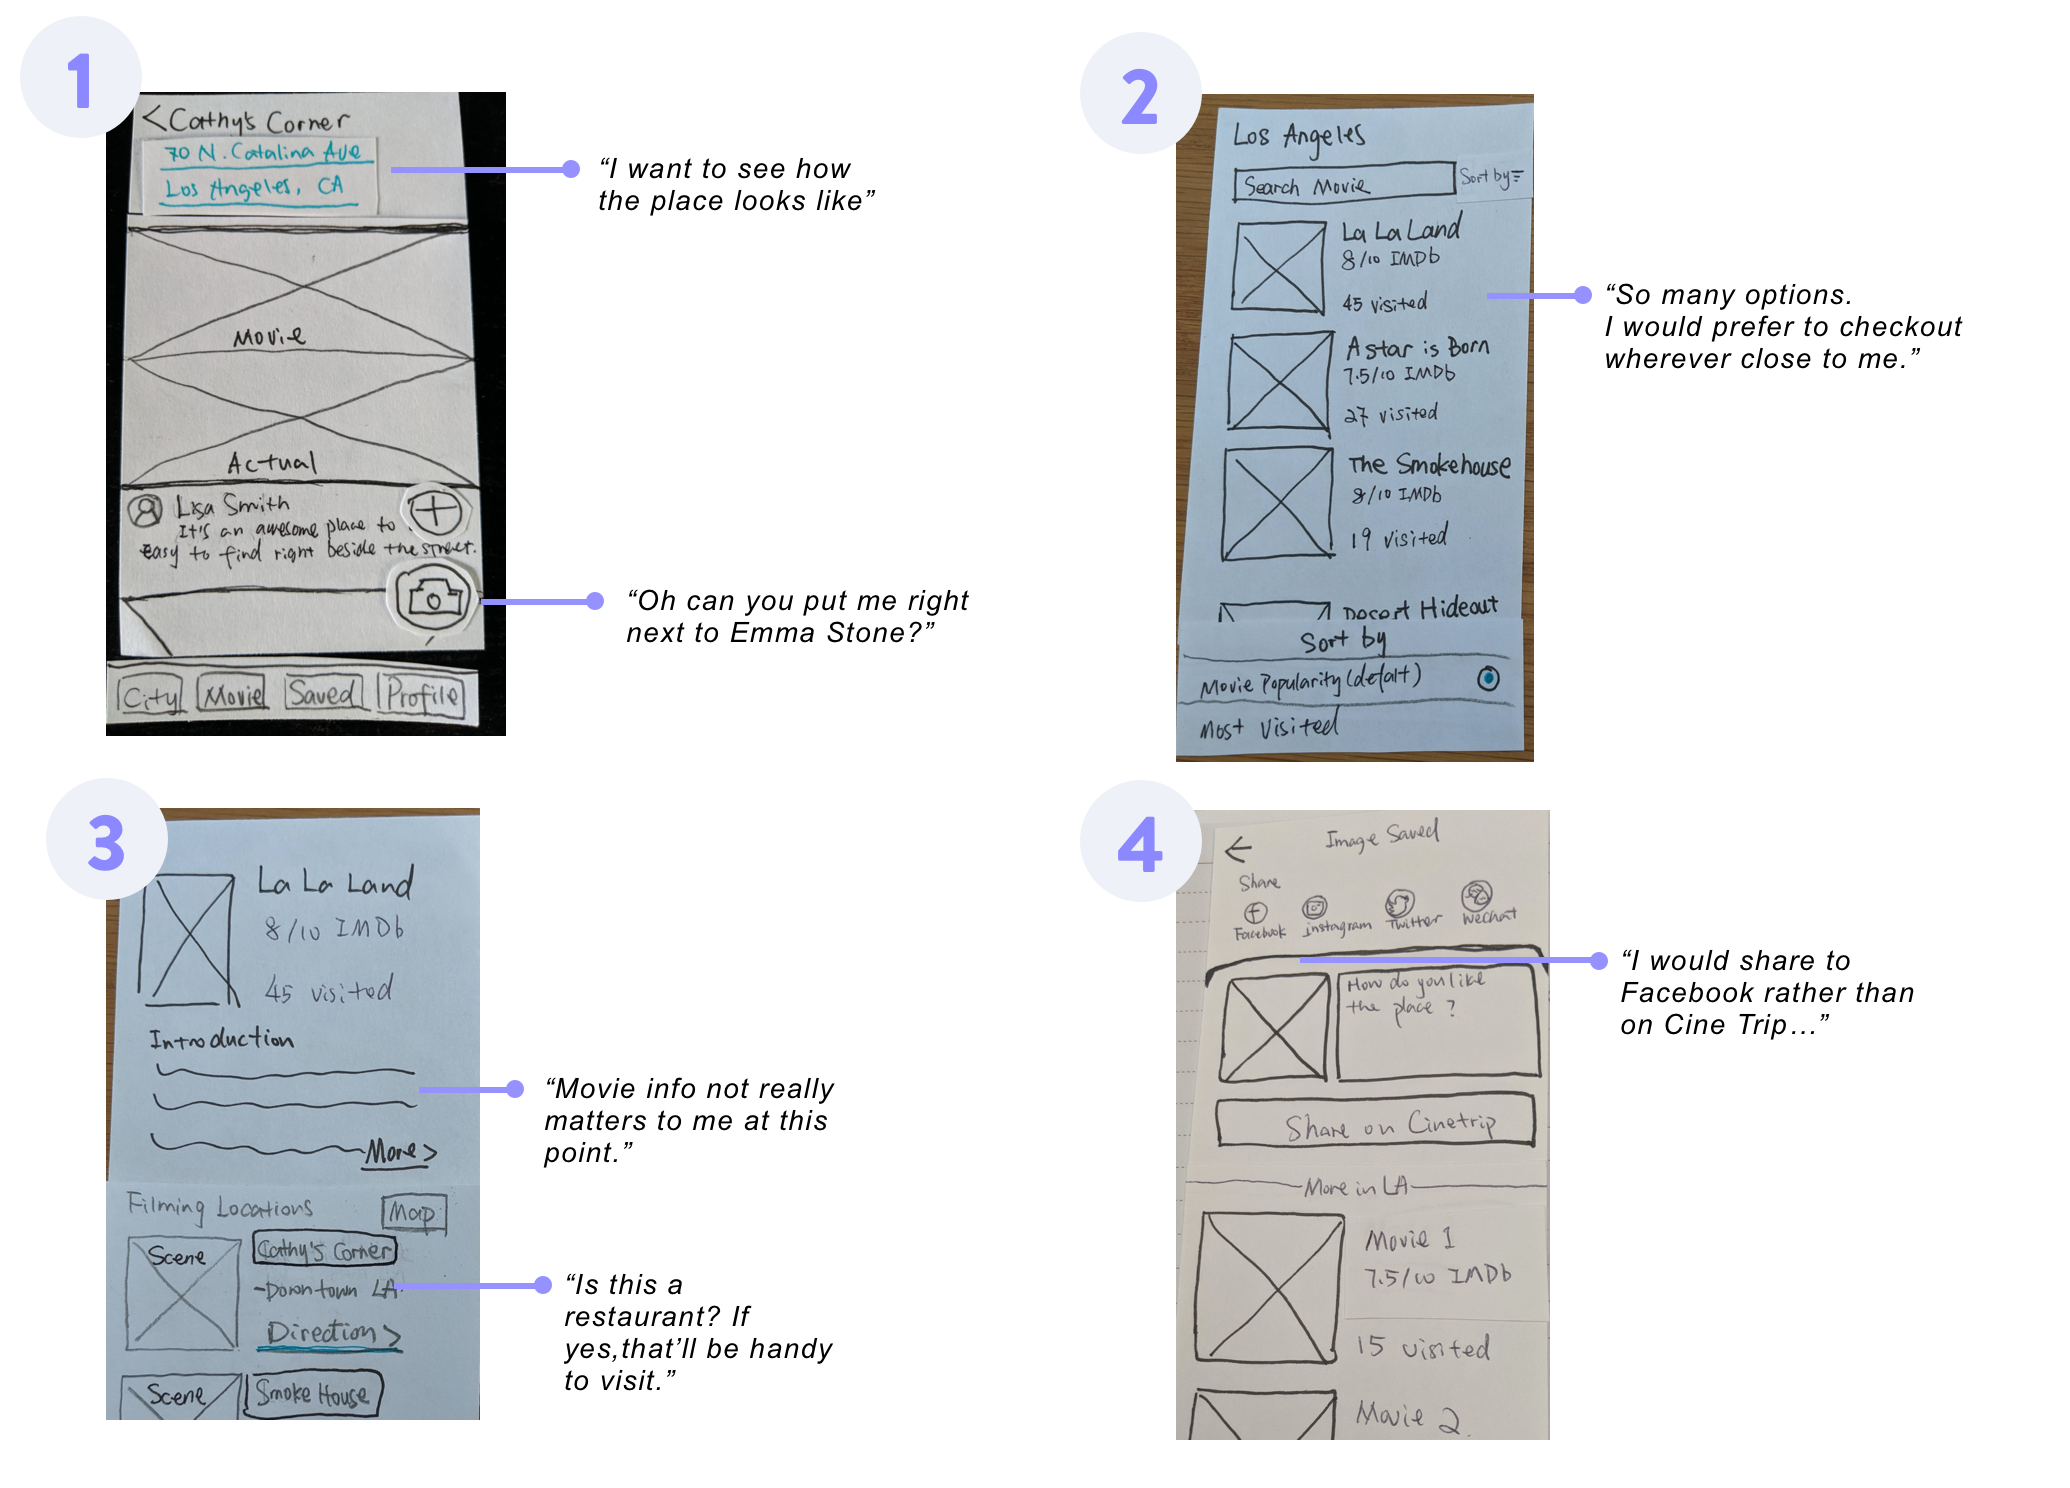 1
<Cathy's Corner
70 N. Catalina Ave
Los Angeles, CA
Movie
Actual
Lisa Smith
It's an awesome place to
easy to find right beside the street.
City Movie Saved Profile
“I want to see how
the place looks like”
“Oh can you put me right
next to Emma Stone?”
2
Los Angeles
Search Movie
Sort by
La La Land
8/10 IMDb
45 visited
A star is Born
7.5/10 IMDb
27 visited
The Smokehouse
8/10 IMDb
19 visited
Desert Hideout
Sort by
Movie Popularity (defalt)
Most Visited
“So many options.
I would prefer to checkout
wherever close to me.”
3
La La Land
8/10 IMDb
45 visited
Introduction
More >
Filming Locations
Map
Scene
Cathy's Corner
-Downtown LA
Direction >
Scene
Smoke House
“Movie info not really
matters to me at this
point.”
“Is this a
restaurant? If
yes,that’ll be handy
to visit.”
4
Image Saved
Share
Facebook instagram Twitter Wechat
How do you like
the place ?
Share on Cinetrip
More in LA
Movie 1
7.5/10 IMDb
15 visited
Movie 2
“I would share to
Facebook rather than
on Cine Trip…”